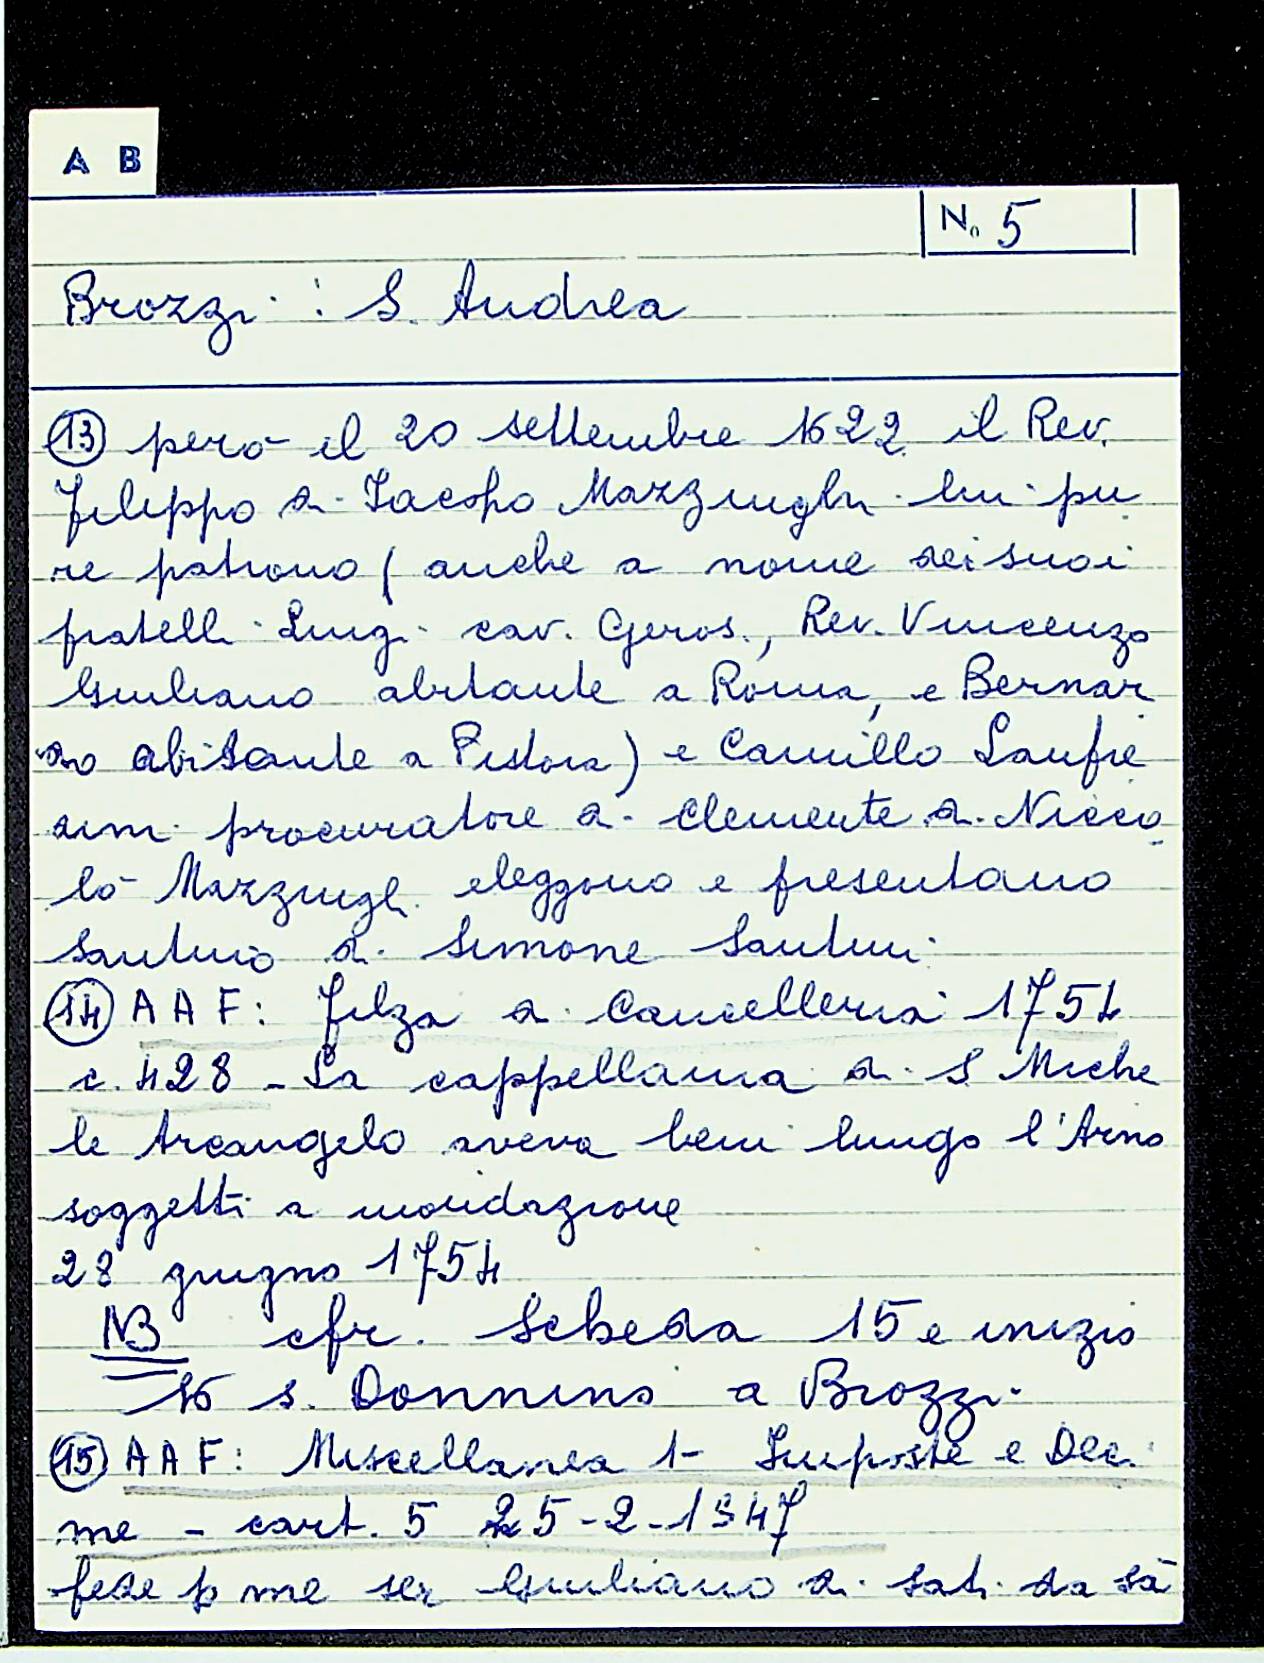 A B
No 5
Brozzi : S. Andrea
13 però il 20 settembre 1622 il Rev.
Filippo di Iacopo Mazzinghi lui pu
re patrono (anche a nome dei suoi
fratelli Luigi cav. Geros., Rev. Vincenzo
Giuliano abitante a Roma, e Bernar
do abitante a Pistoia) e Camillo Lanfre
dini procuratore di Clemente di Nicco
lò Mazzinghi eleggono e presentano
Santino di Simone Santini
14 A A F: filza di Cancelleria 1754
c. 428 - La cappellania di S Miche
le Arcangelo aveva beni lungo l'Arno
soggetti a inondazione
28 giugno 1754
NB cfr. scheda 15 e inizio
16 S. Donnino a Brozzi
15 A A F: Miscellanea 1- Imposte e Deci
me - cart. 5 25-2-1547
fede p me ser Giuliano di da Sā